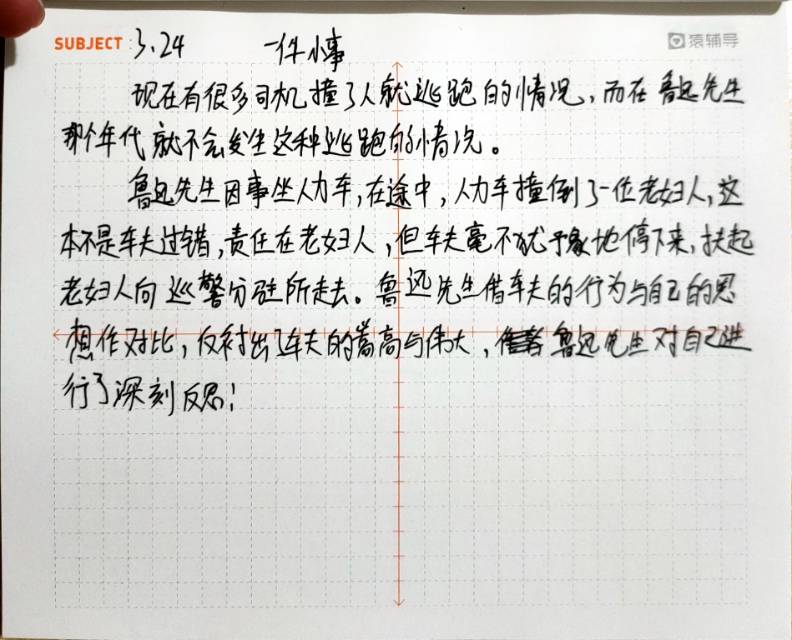 SUBJECT 3.24 一件小事 猿辅导
现在有很多司机撞了人就逃跑的情况，而在鲁迅先生
那个年代就不会发生这种逃跑的情况。
鲁迅先生因事坐人力车，在途中，人力车撞倒了一位老妇人，这
本不是车夫过错，责任在老妇人，但车夫毫不犹豫地停下来，扶起
老妇人向巡警分驻所走去。鲁迅先生借车夫的行为与自己的思
想作对比，反衬出了车夫的崇高与伟大，鲁迅先生对自己进
行了深刻反思！